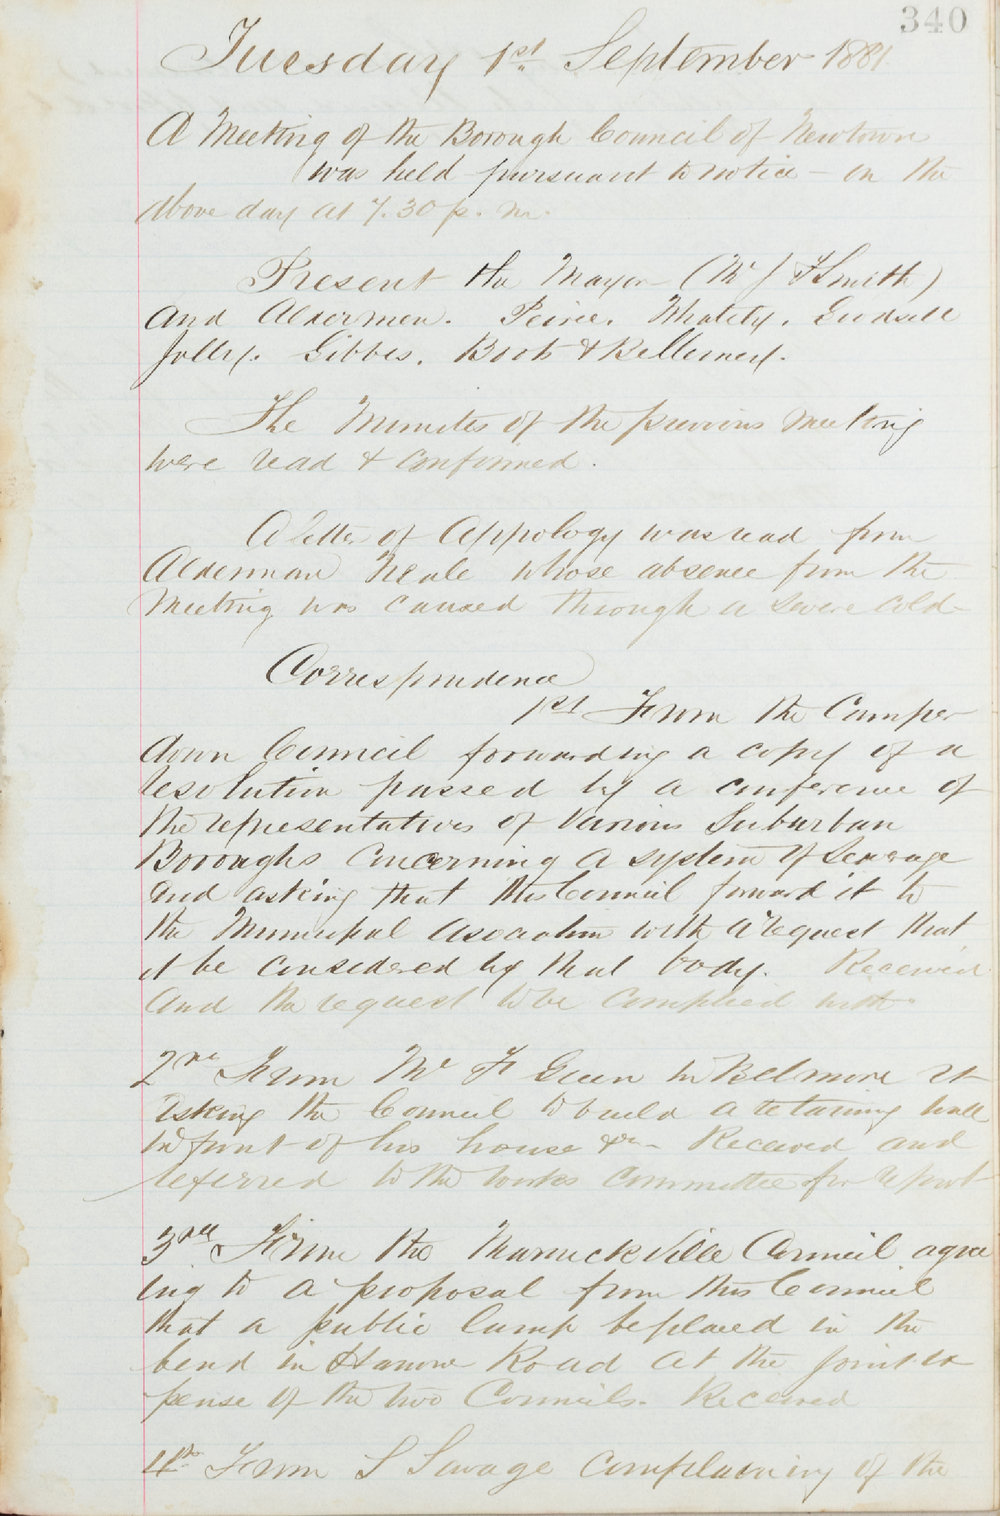 340
Tuesday 1st September 1881
A Meeting of the Borough Council of Newtown
was held pursuant to notice - on the
above day at 7.30 p. m.
Present the Mayor (Mr J F Smith)
and Aldermen. Peirce. Whately. Goodsell
Jolly. Gibbes. Boots & Kellemey.
The Minutes of the previous Meeting
were read & confirmed.
A letter of Appology was read from
Alderman Neale whose absence from the
Meeting was caused through a severe cold
Correspondence
1st From the Camper
down Council forwarding a copy of a
resolution passed by a conference of
the representatives of various Suburban
Boroughs concerning a system of Sewerage
and asking that this Council forward it to
the Municipal Asociation with a request that
it be considered by that body. Received
and the request to be complied with.
2nd From Mr F Green in Belmore St
asking the Council to build a retaining wall
in front of his house &c - Received and
referred to the works committee for report
3rd From the Marrickville Council agree
ing to a proposal from this Council
that a public lamp be placed in the
bend in Hanove Road at the joint ex
pense of the two Councils. Received
4th From S Savage complaining of the